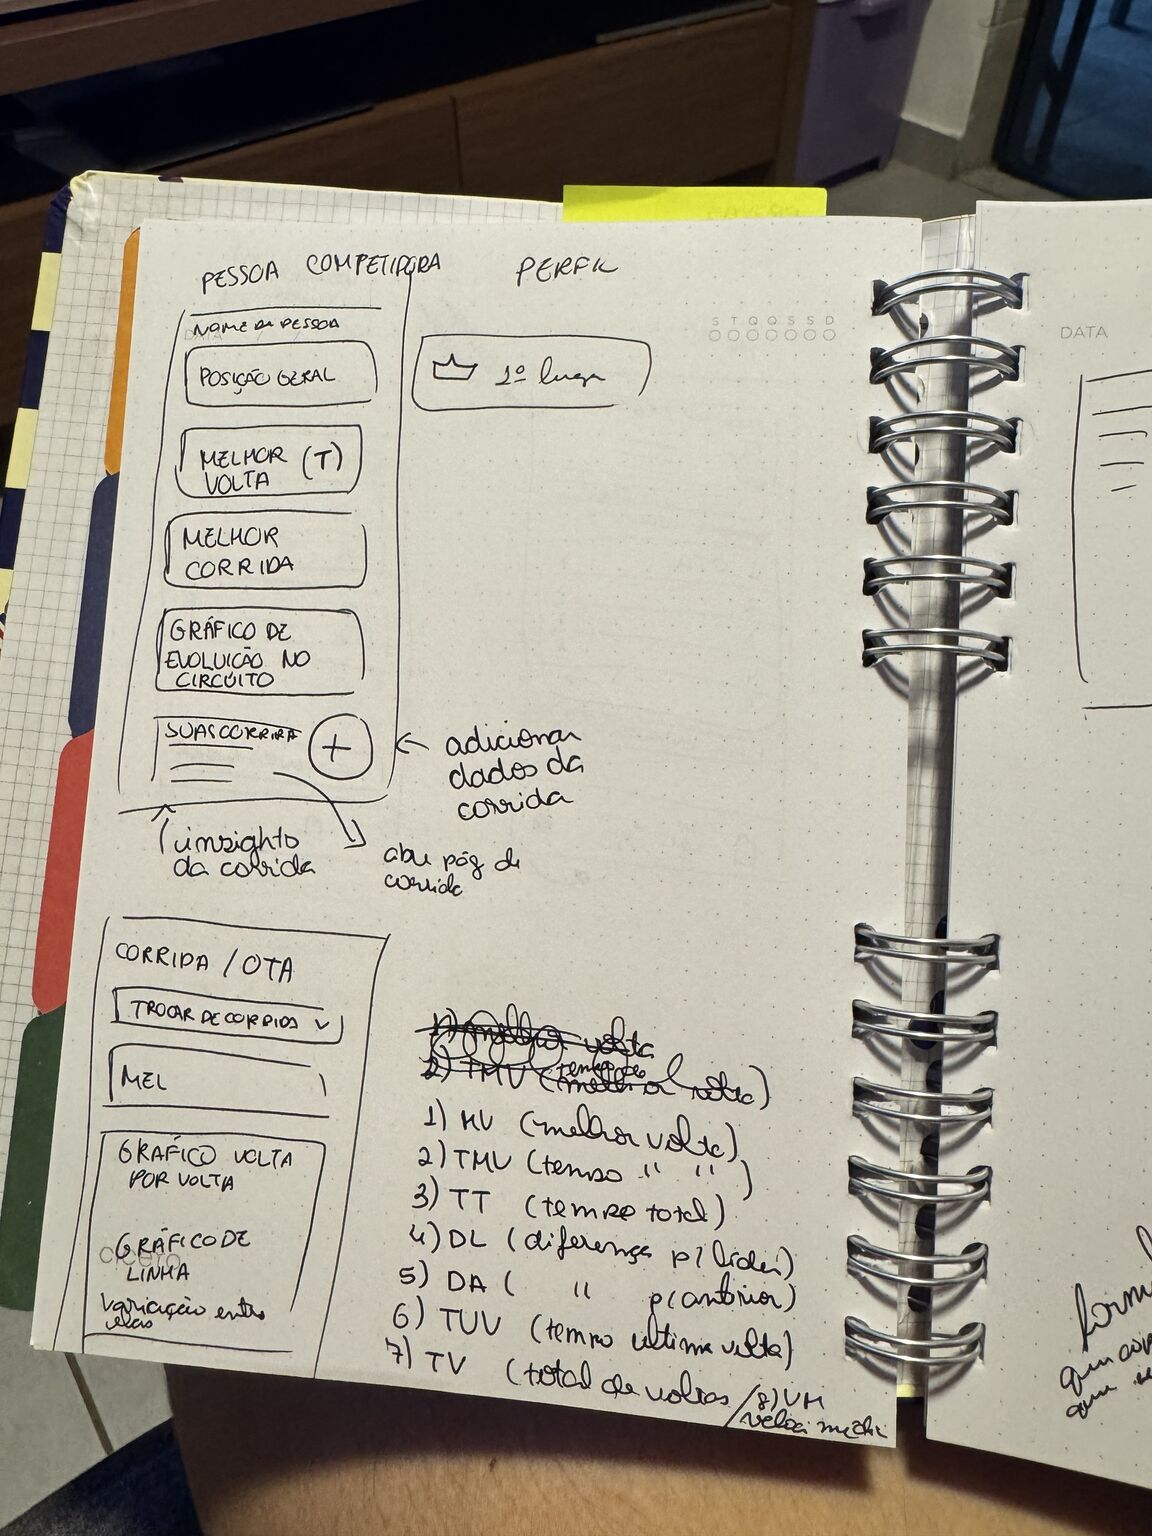 PESSOA COMPETIDORA
PERFIL
S T Q Q S S D
NOME DA PESSOA
POSIÇÃO GERAL
1º lugar
MELHOR (T)
VOLTA
MELHOR
CORRIDA
GRÁFICO DE
EVOLUÇÃO NO
CIRCÚITO
SUAS CORRIDA
+
adicionar
dados da
corrida
insights
da corrida
abre pág de
corrida
CORRIDA / DTA
TROCAR DE CORRIDA
MEL
GRÁFICO VOLTA
POR VOLTA
GRÁFICO DE
LINHA
variação entre
elas
cicero
1) melhor volta
2) TMV (tempo de melhor volta)
1) MV (melhor volta)
2) TMV (tempo " ")
3) TT (tempo total)
4) DL (diferença p/ líder)
5) DA ( " p/ anterior)
6) TUV (tempo última volta)
7) TV (total de voltas / 8) VM
veloci média
DATA
quem
que